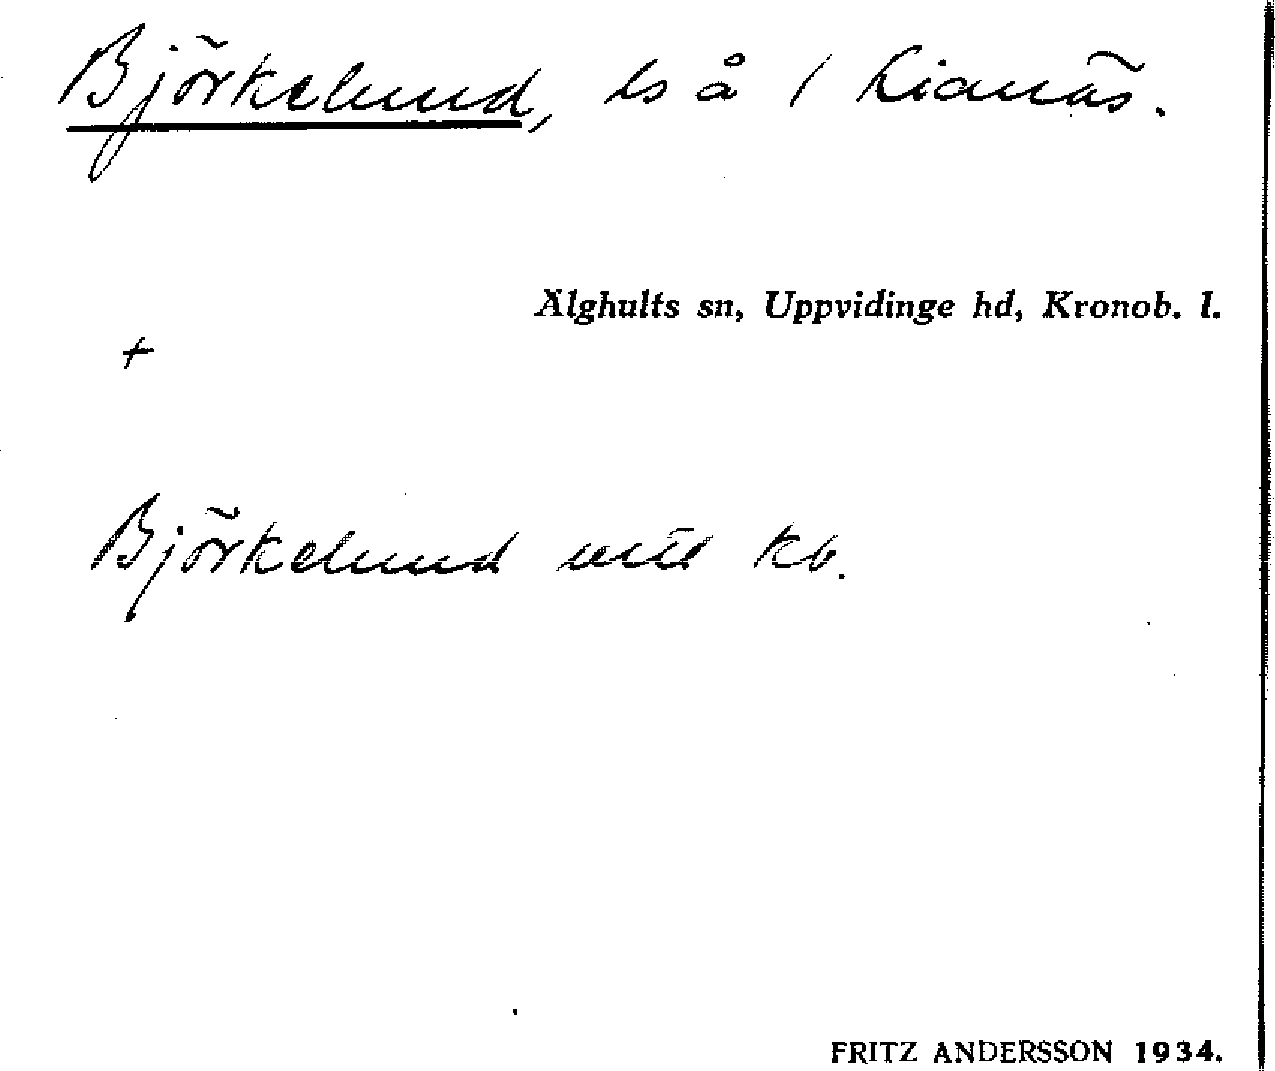 Björkelund, ls å 1 Lianäs.
Älghults sn, Uppvidinge hd, Kronob. l.
+
Björkelund util kb.
FRITZ ANDERSSON 1934.